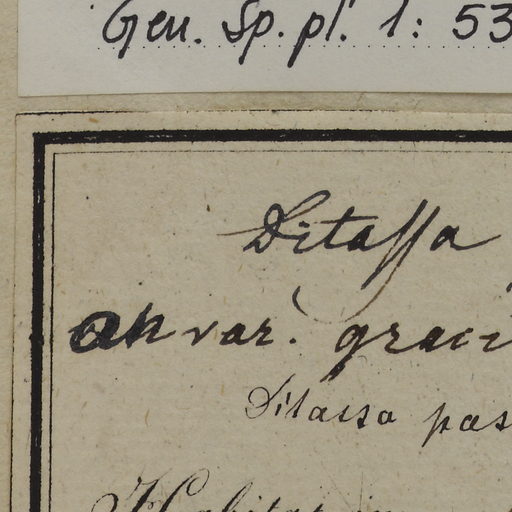 Gen. Sp. pl. 1: 53
Ditassa
an var. graci
Ditassa pas
Habitat in